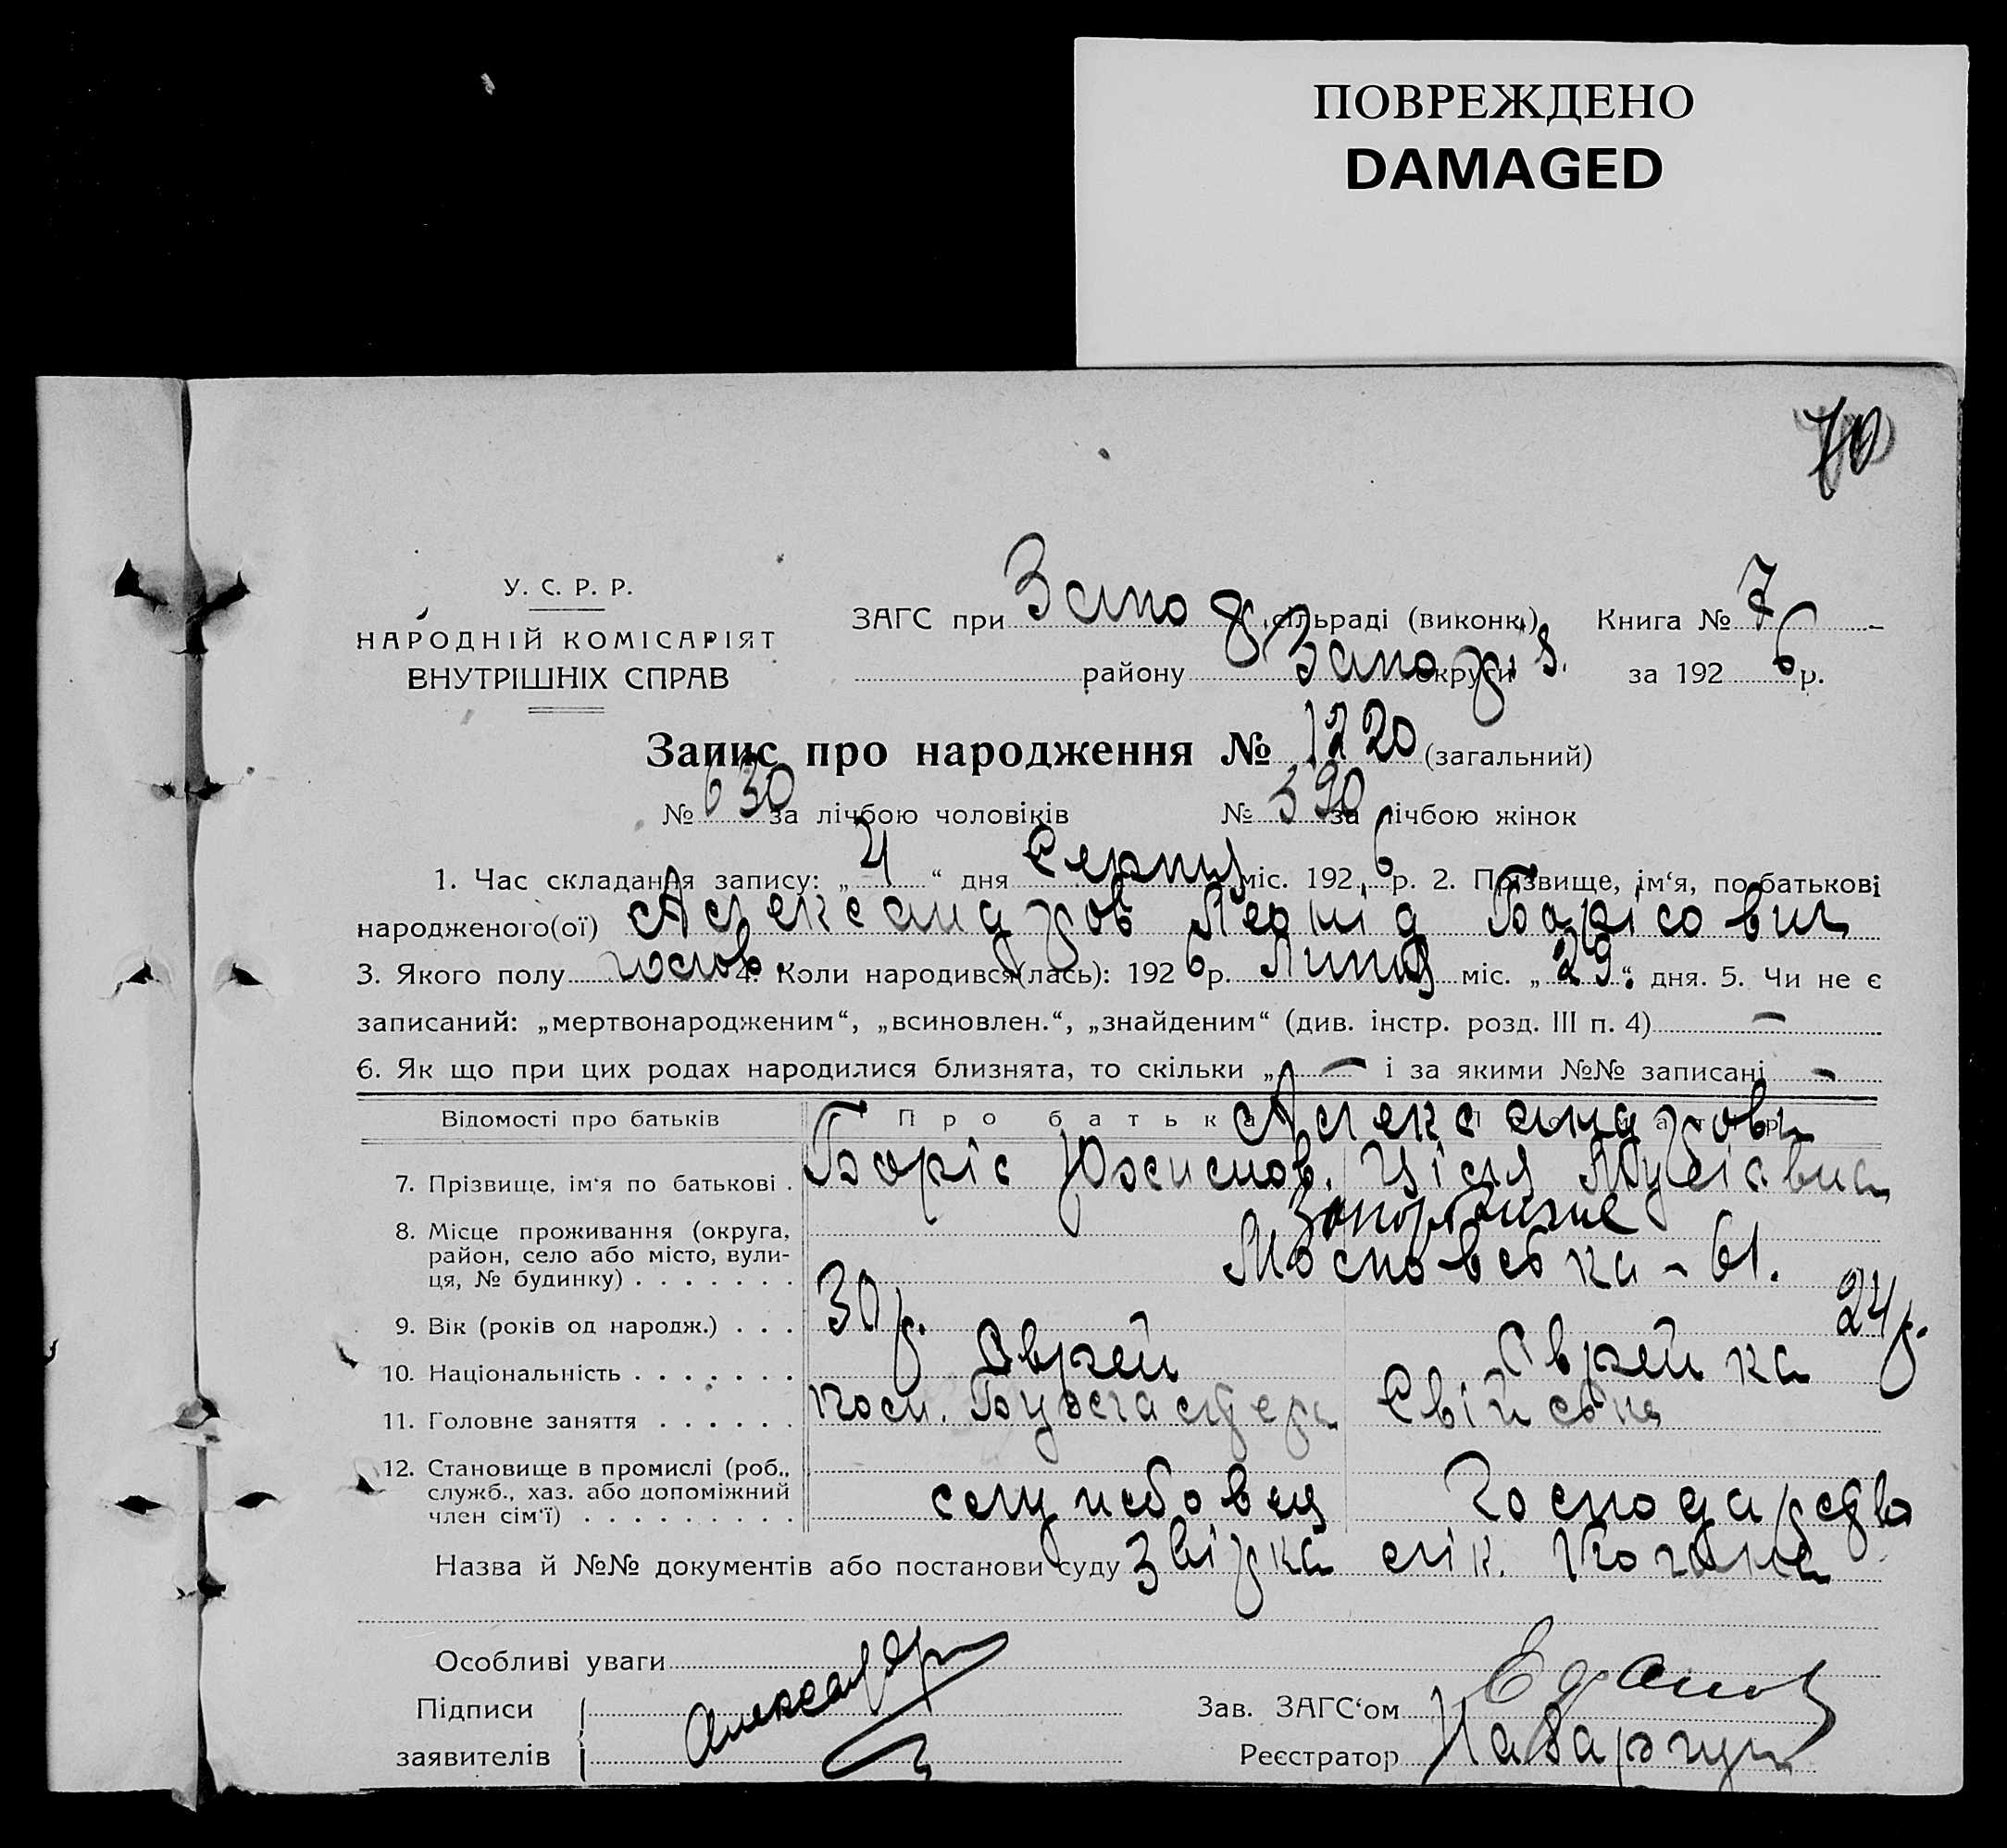 ПОВРЕЖДЕНО
DAMAGED
70
У. С. Р. Р.
НАРОДНІЙ КОМІСАРІЯТ
ВНУТРІШНІХ СПРАВ
ЗАГС при Запо сільраді (виконк.) Книга № 7
району Запор. округи за 1926 р.
Запис про народження № 1220 (загальний)
№ 630 за лічбою чоловіків № 590 за лічбою жінок
1. Час складання запису: „4“ дня Серпня міс. 1926 р. 2. Прізвище, ім‘я, по батькові
народженого(ої) Александров Леонід Борісович
3. Якого полу чолов. 4. Коли народився(лась): 1926 р. Липня міс. „29“ дня. 5. Чи не є
записаний: „мертвонародженим“, „всиновлен.“, „знайденим“ (див. інстр. розд. III п. 4) —
6. Як що при цих родах народилися близнята, то скільки „ — і за якими №№ записані —
Відомості про батьків Про батька Александрови
7. Прізвище, ім‘я по батькові . Боріс Цісля
8. Місце проживання (округа, Запоріжжє
район, село або місто, вули-
ця, № будинку) . . . . . . . Московська - 61.
9. Вік (років од народж.) . . . 30 р. 24 р.
10. Національність . . . . . . . Єврей Єврейка
11. Головне заняття . . . . . . Бухгалтера Свійська
12. Становище в промислі (роб.,
служб., хаз. або допоміжний
член сім‘ї) . . . . . . . . . службовця господарство
Назва й №№ документів або постанови суду Звірка лік. Когана
Особливі уваги
Підписи Александр
заявителів
Зав. ЗАГС‘ом
Реєстратор